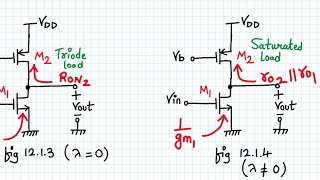 VDD
M2
Triode
load
RON2
+
Vout
-
fig 12.1.3 (λ = 0)
VDD
Vb
M2
Saturated
Load
ro2 || ro1
M1
Vin
+
Vout
-
1/gm1
fig 12.1.4
(λ ≠ 0)